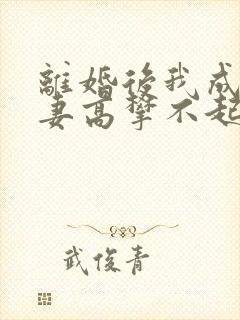 離婚後我成
妻高攀不起
武俊青